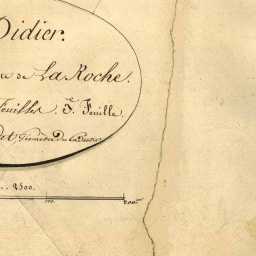 Didier.
de La Roche.
Feuilles. 3.e Feuille.
Géomètre du Cadastre
2500.